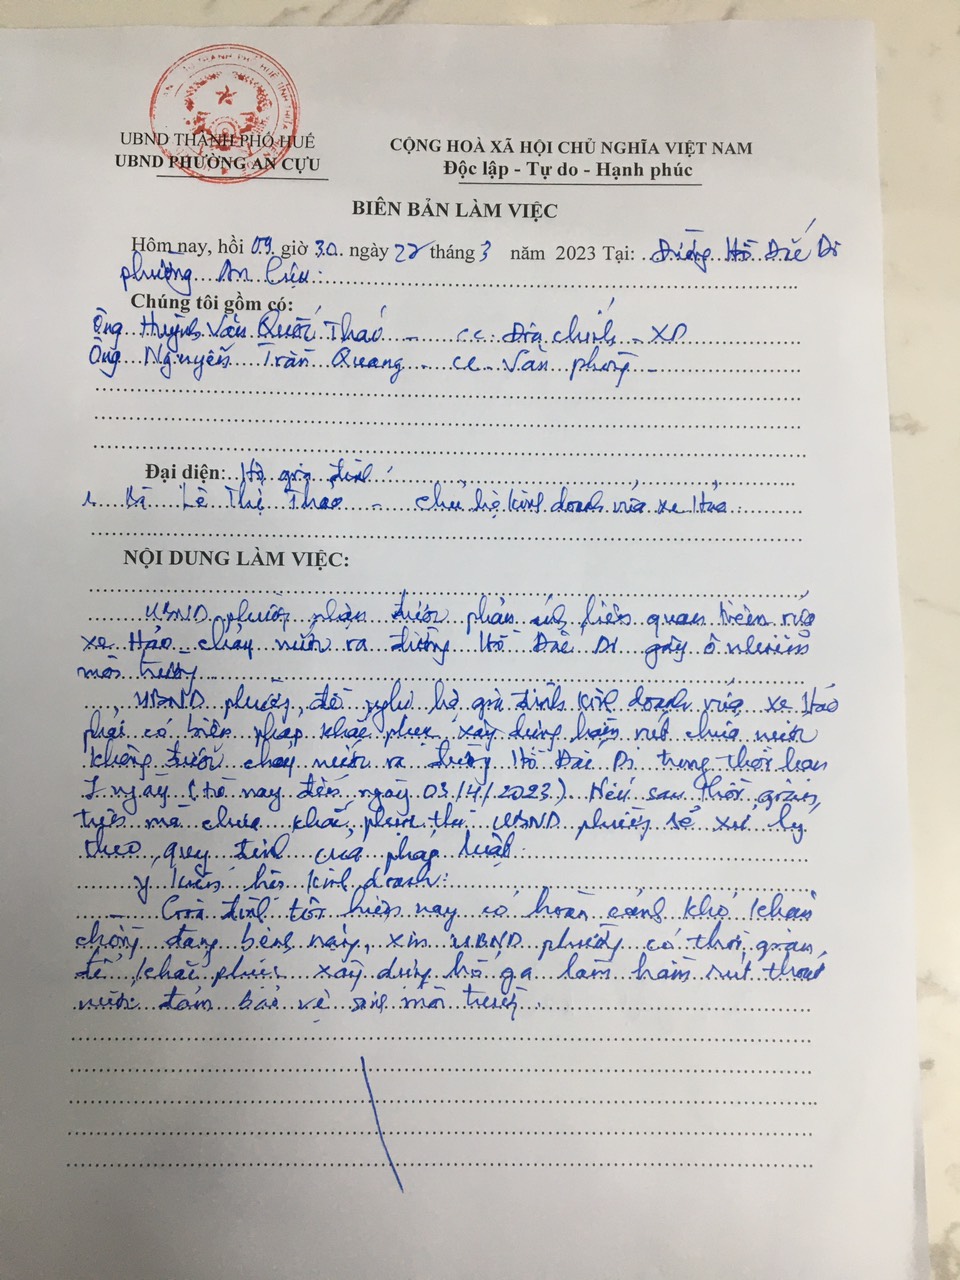 UBND THÀNH PHỐ HUẾ
UBND PHƯỜNG AN CỰU
CỘNG HOÀ XÃ HỘI CHỦ NGHĨA VIỆT NAM
Độc lập - Tự do - Hạnh phúc
BIÊN BẢN LÀM VIỆC
Hôm nay, hồi 09 giờ 30 ngày 22 tháng 3 năm 2023 Tại: Đường Hồ Đắc Di
phường An Cựu.
Chúng tôi gồm có:
Ông Huỳnh Văn Quốc Thao - CC Địa chính - XD
Ông Nguyễn Trần Quang - CC Văn phòng -
Đại diện: Hộ gia đình
1. Bà Lê Thị Thảo - chủ hộ kinh doanh rửa xe Hảo
NỘI DUNG LÀM VIỆC:
UBND phường nhận được phản ánh liên quan tiệm rửa
xe Hảo chảy nước ra đường Hồ Đắc Di gây ô nhiễm
môi trường
UBND phường đề nghị hộ gia đình kinh doanh rửa xe Hảo
phải có biện pháp khắc phục xây dựng hầm rút chứa nước
không được chảy nước ra đường Hồ Đắc Di trong thời hạn
7 ngày (từ nay đến ngày 03/4/2023). Nếu sau thời gian
trên mà chưa khắc phục thì UBND phường sẽ xử lý
theo quy định của pháp luật.
Ý kiến hộ kinh doanh:
- Gia đình tôi hiện nay có hoàn cảnh khó khăn
chồng đang bệnh nặng, xin UBND phường có thời gian
để khắc phục xây dựng hố ga làm hầm rút thoát
nước đảm bảo vệ sinh môi trường.